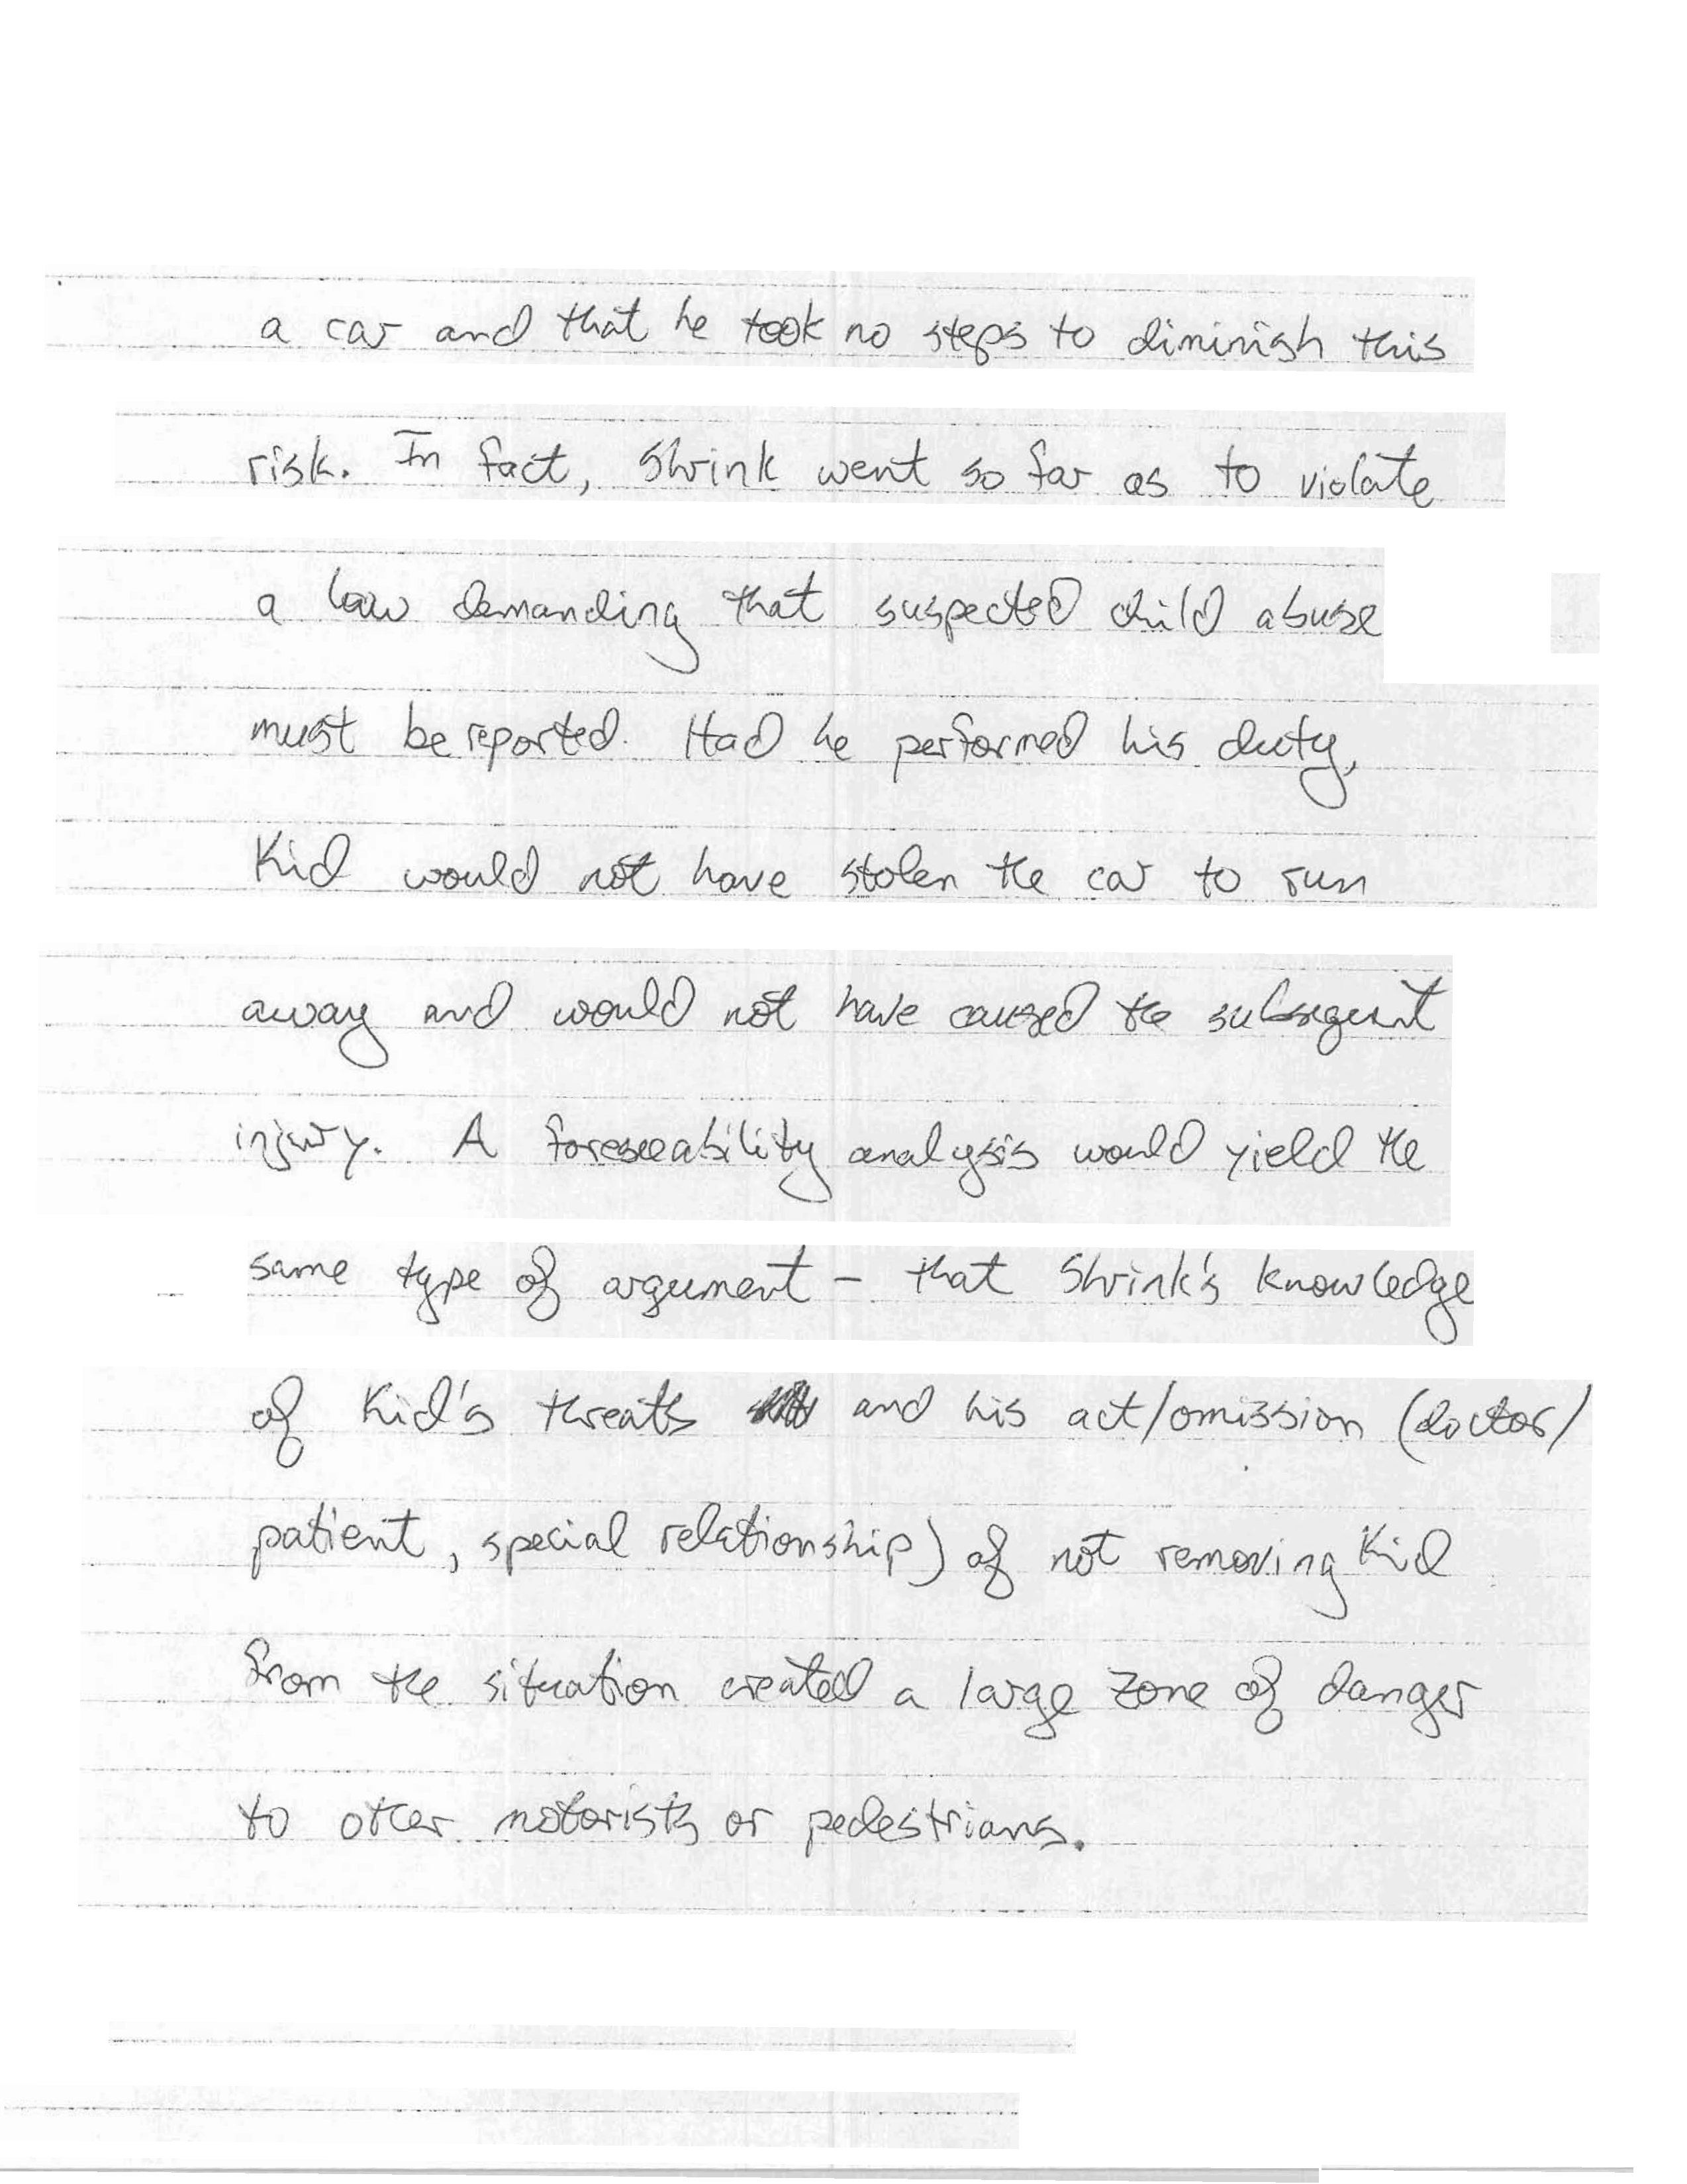 a car and that he took no steps to diminish this
risk. In fact, Shrink went so far as to violate
a law demanding that suspected child abuse
must be reported. Had he performed his duty,
Kid would not have stolen the car to run
away and would not have caused the subsequent
injury. A foreseeability analysis would yield the
same type of argument – that Shrink's knowledge
of Kid's threats and his act/omission (doctor/
patient, special relationship) of not removing Kid
from the situation created a large zone of danger
to other motorists or pedestrians.